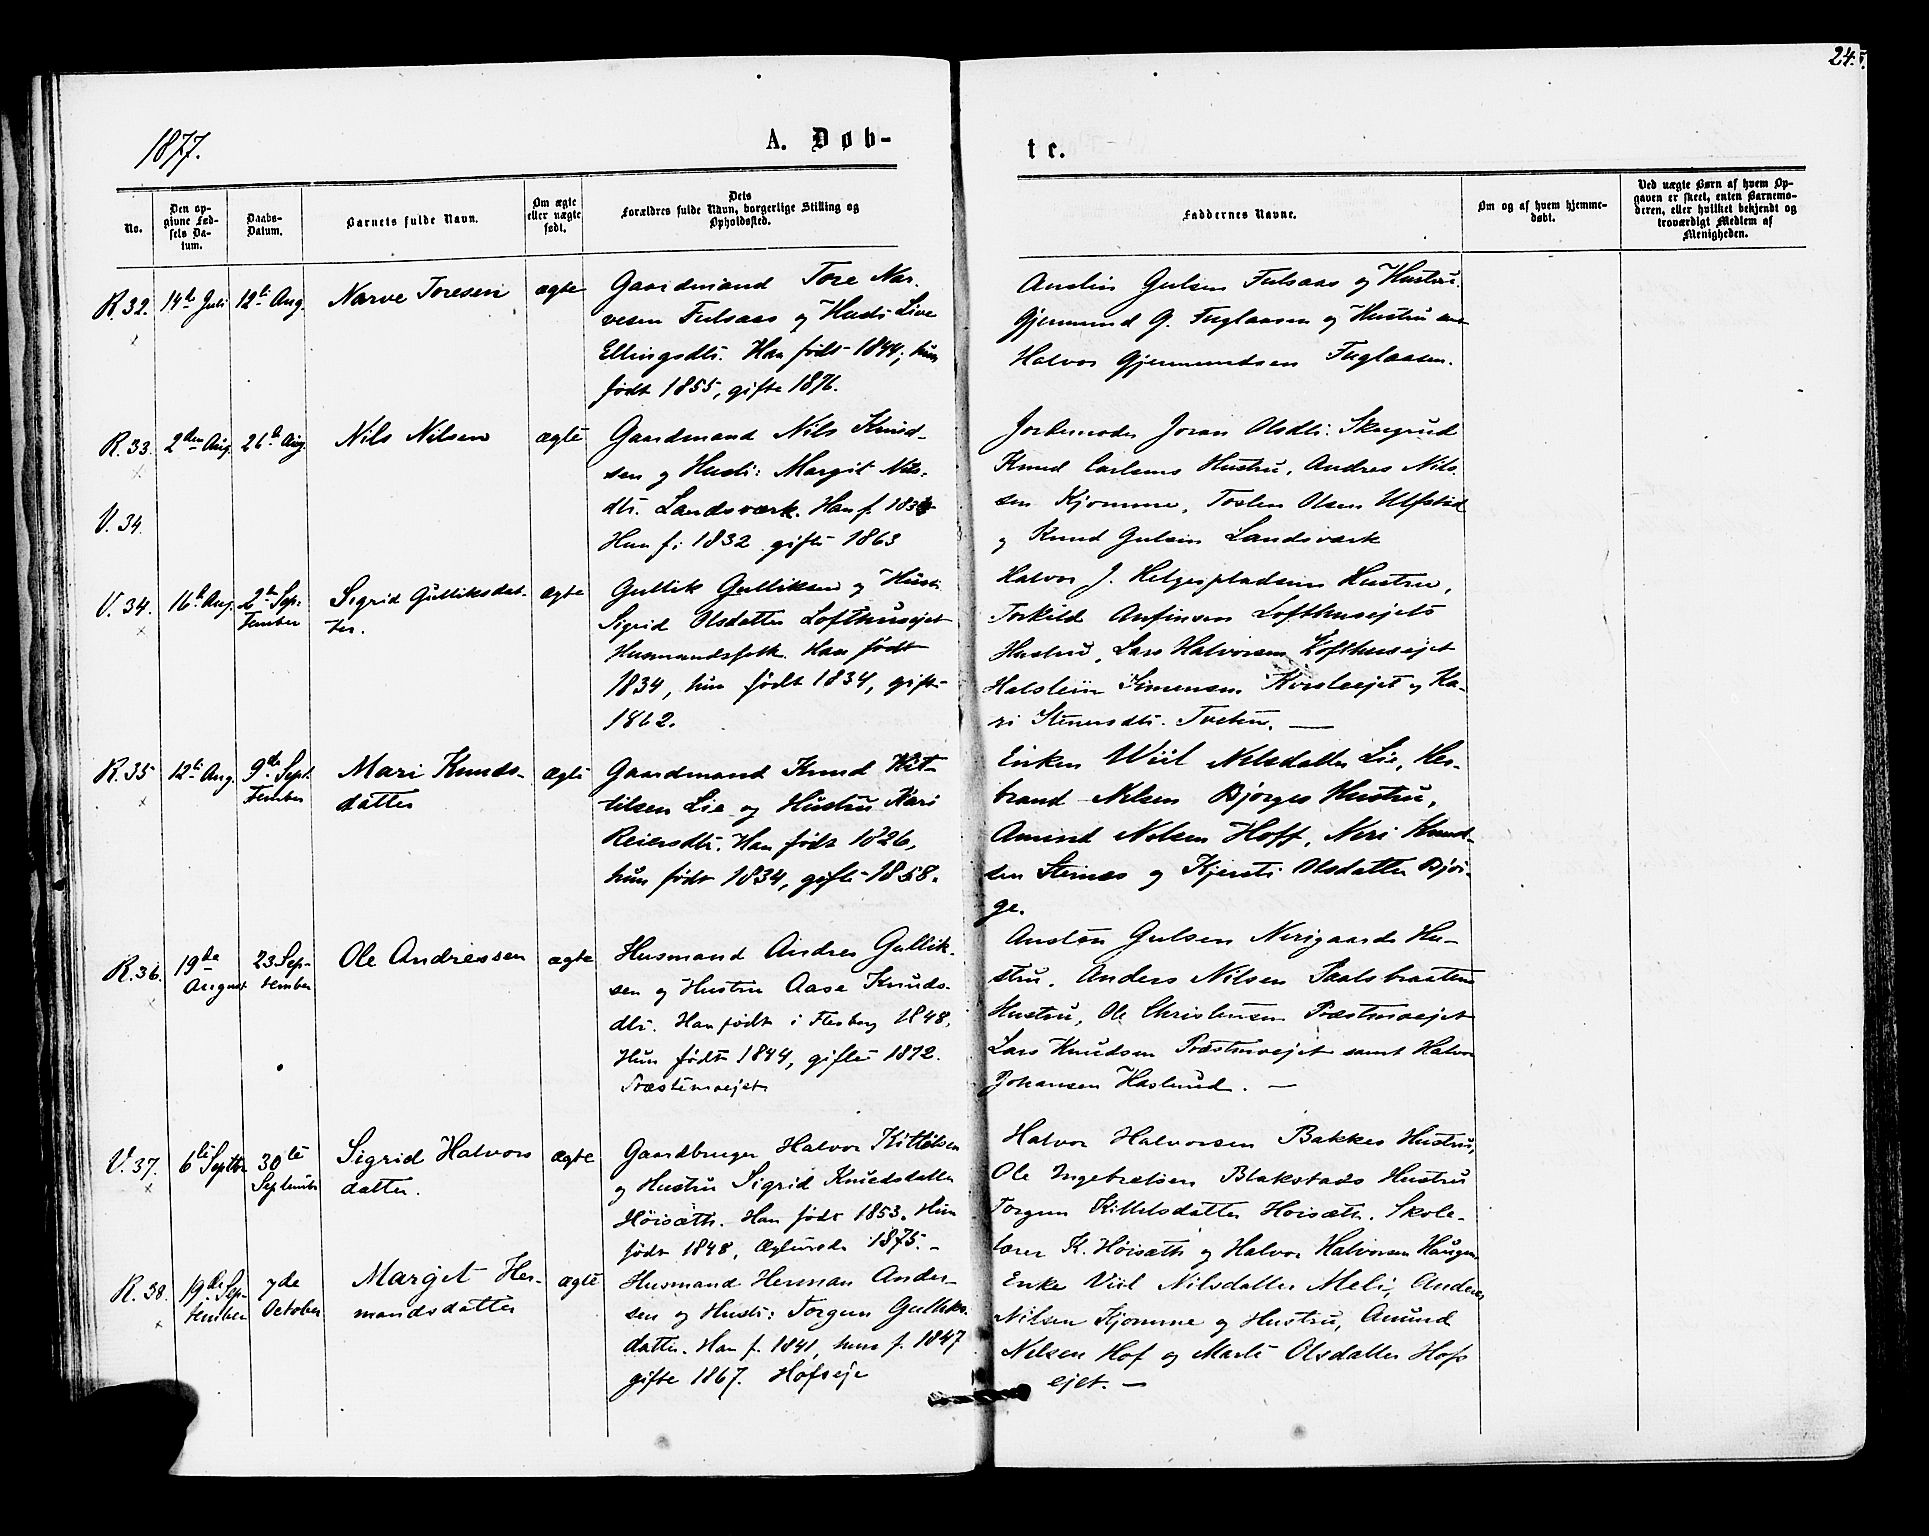 24.
1877.
A. Døb-
te.
No.
Den op-
givne Fød-
sels Da-
tum.
Daabs-
Datum.
Barnets fulde Navn.
Om ægte
eller uægte
født.
Dets
Forældres fulde Navn, borgerlige Stilling og
Opholdssted.
Faddernes Navne.
Om og af hvem hjemme-
døbt.
Ved uægte Børn af hvem Op-
gaven er skeet, enten Barnemo-
deren, eller hvilket bekjendt og
troværdigt Medlem af
Menigheden.
R. 32. 14de Juli 12te Aug. Narve Toresen ægte
Gaardmand Tore Nar-
vesen Fulsaas og Hustr. Live
Ellingsdtr. Han født 1844; hun
født 1855, gifte 1876.
Gulsen Fulsaas og Hustru.
Gjermund G. Fuglaasen og Hustru
Halvor Gjermundsen Fuglaasen.
R. 33. 2den Aug. 26de Aug. Nils Nilsen ægte
V. 34.
Gaardmand Nils Knud-
sen og Hustr: Margit Nils-
dtr. Landsværk. Han f.
Hun f. 1832 gifte 1863
Joran Olsdtr. Skugrud
Knud Carlsens Hustru, Andres Nil-
sen Kjomme, Tosten Olsen Ulfstid
og Knud Gulsen Landsværk
V. 34. 16de Aug. 2den Sep-
tember
Sigrid Gulliksdat-
ter.
ægte
Gullik Gulliksen og Hustr.
Sigrid Olsdatter Lofthusejet
Husmandsfolk. Han født
1834, hun født 1834, gift-
1862.
Halvor J. Helgespladsens Hustru,
Torkild Anfinsen Lofthusejets
Hustru, Lars Halvorsen Lofthusejet
Halstein Simensen og Ka-
ri Tveten. —
R. 35 12te Aug. 9de Sept
tember
Mari Knuds-
datter
ægte
Gaardmand Knud Kit-
tilsen Lie og Hustru Kari
Reiersdtr. Han født 1826,
hun født 1834, gifte 1858.
Enken Viil Nilsdatter Lie, Her-
brand Nilsen Bjørges Hustru,
Amund Nilsen Hoff, Neri Knud-
sen Stenes og Kjersti Olsdatter Bjør-
ge.
R. 36. 19de
August
23 Sep-
tember
Ole Andresen ægte
Husmand Andres Gullik-
sen og Hustru Aase Knuds-
dtr. Han født i Flesberg 1848,
Hun født 1844, gifte 1872.
Præstemoejet
Austen Gulsen Nerigaards Hu-
stru. Anders Nilsen Paalsbraatens
Hustru, Ole Christensen Præstmoejet
Lars Knudsen Præstmoejet samt Halvor
Johansen Haslerud. —
V. 37. 6te Septbr 30te
September
Sigrid Halvors
datter.
ægte
Gaardbruger Halvor Kittilsen
og Hustru Sigrid Knudsdatter
Høisæth. Han født 1853. Hun
født 1848, 1875. -
Halvor Halvorsen Bakkes Hustru,
Ole Ingebretsen Blakstads Hustru
Torgun Kittelsdatter Høisæth. Skole-
lærer K. Høisæth og Halvor Halvorsen Haugen
R. 38. 19de Sep-
tember
7de
October
Margit Her-
mandsdatter
ægte
Husmand Herman Ander-
sen og Hustr: Torgun Gulliks-
datter. Han f. 1841, hun f. 1847
gifte 1867. Hofseje
Enke Viil Nilsdatter Meli, Anders
Nilsen Kjomme og Hustru, Amund
Nilsen Hof og Marte Olsdatter Hofs
ejet. —